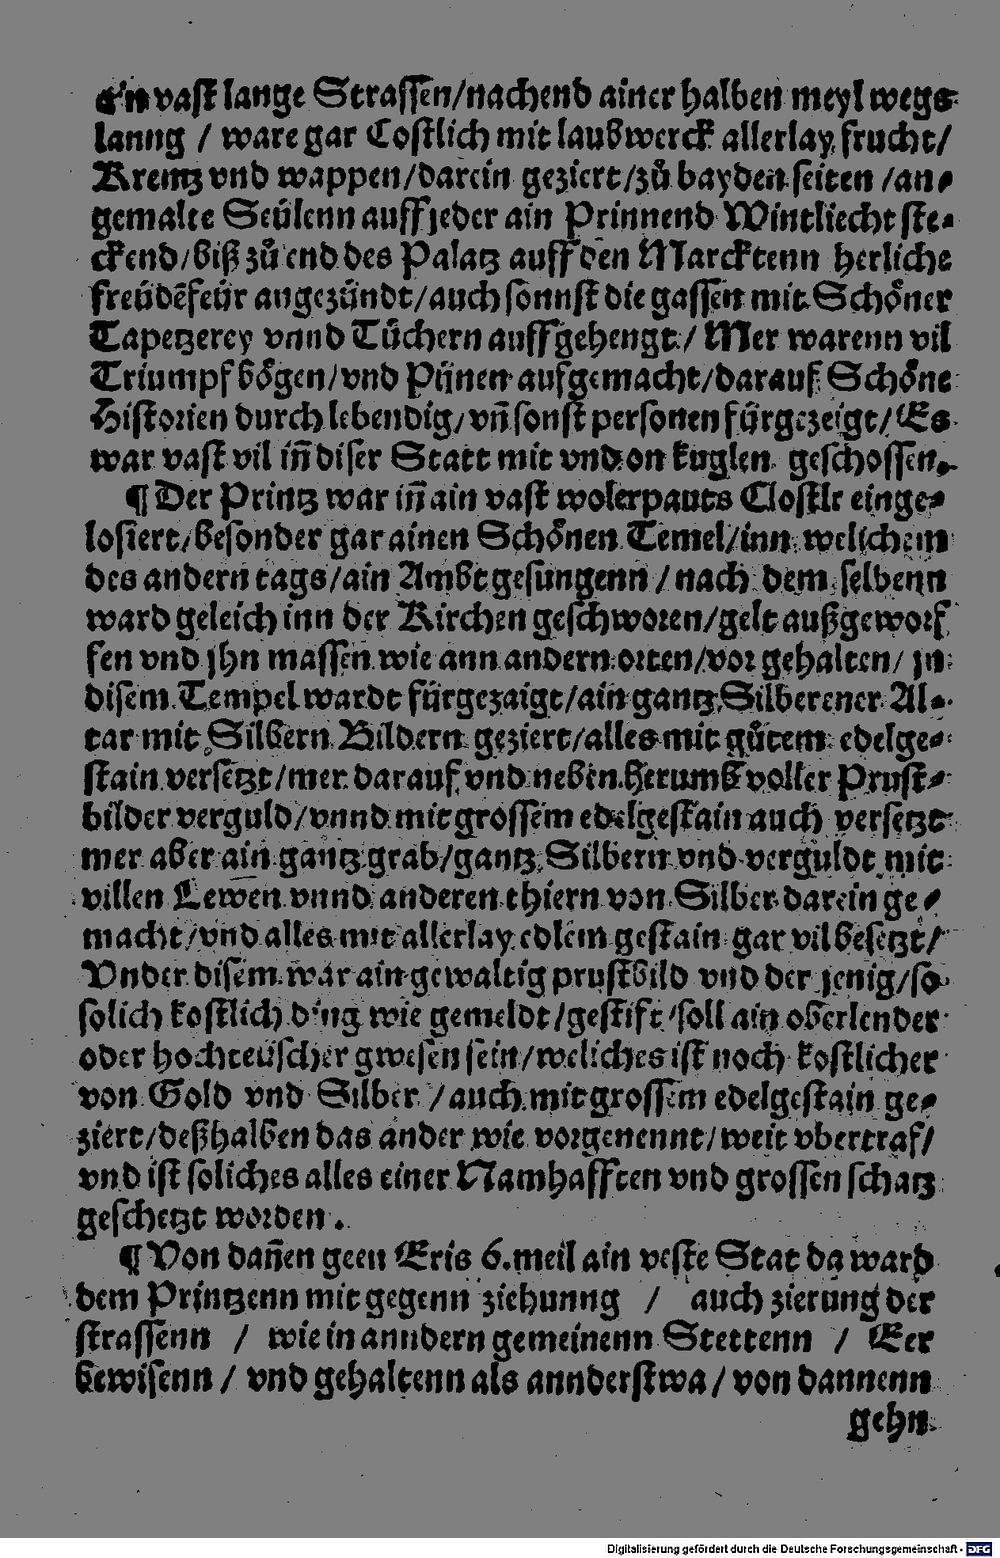 En vast lange Strassen/nachend ainer halben meyl wegs
lanng / ware gar Costlich mit laubwerck allerlay frucht/
Krentz vnd wappen/darein geziert/zů bayden seiten /an⸗
gemalte Seülenn auff jeder ain Prinnend Wintliecht ste⸗
ckend/biß zů end des Palatz auff den Marcktenn herliche
freüdẽfeür angezündt/auch sonnst die gassen mit Schöner
Tapetzerey vnnd Tůchern auffgehengt/ Mer warenn vil
Triumpf bögen/vnd Pünen aufgemacht/darauf Schöne
Historien durch lebendig/vñ sonst personen fürgezeigt/Es
war vast vil iñ diser Statt mit vnd on kuglen geschossen.
¶ Der Printz war iñ ain vast wolerpauts Clostlr einge⸗
losiert/besonder gar ainen Schönen Temel/inn welichem
des andern tags/ain Ambt gesungenn / nach dem selbenn
ward geleich inn der Kirchen geschworen/gelt außgeworf
fen vnd jhn massen wie ann andern orten/vor gehalten/ jn
disem Tempel wardt fürgezaigt/ain gantz Silberener Al⸗
tar mit Silbern Bildern geziert/alles mit gůtem edelge⸗
stain versetzt/mer darauf vnd neben herumb voller Prust⸗
bilder verguld/vnnd mit grossem edelgestain auch versetzt
mer aber ain gantz grab/gantz Silbern vnd verguldt mit
villen Lewen vnnd anderen thiern von Silber darein ge⸗
macht/vnd alles mit allerlay edlem gestain gar vil besetzt/
Vnder disem war ain gewaltig prustbild vnd der jenig/so
solich kostlich ding wie gemeldt/gestift/soll ain oberlender
oder hochteüscher gwesen sein/weliches ist noch kostlicher
von Gold vnd Silber /auch mit grossem edelgestain ge⸗
ziert/deßhalben das ander wie vorgenennt/weit vbertraf/
vnd ist soliches alles einer Namhafften vnd grossen schatz
geschetzt worden.
¶ Von dañen geen Eris 6. meil ain veste Stat da ward
dem Printzenn mit gegenn ziehunng / auch zierung der
strassenn / wie in anndern gemeinenn Stettenn / Eer
bewisenn / vnd gehaltenn als annderstwa / von dannenn
gehn
Digitalisierung gefördert durch die Deutsche Forschungsgemeinschaft - DFG